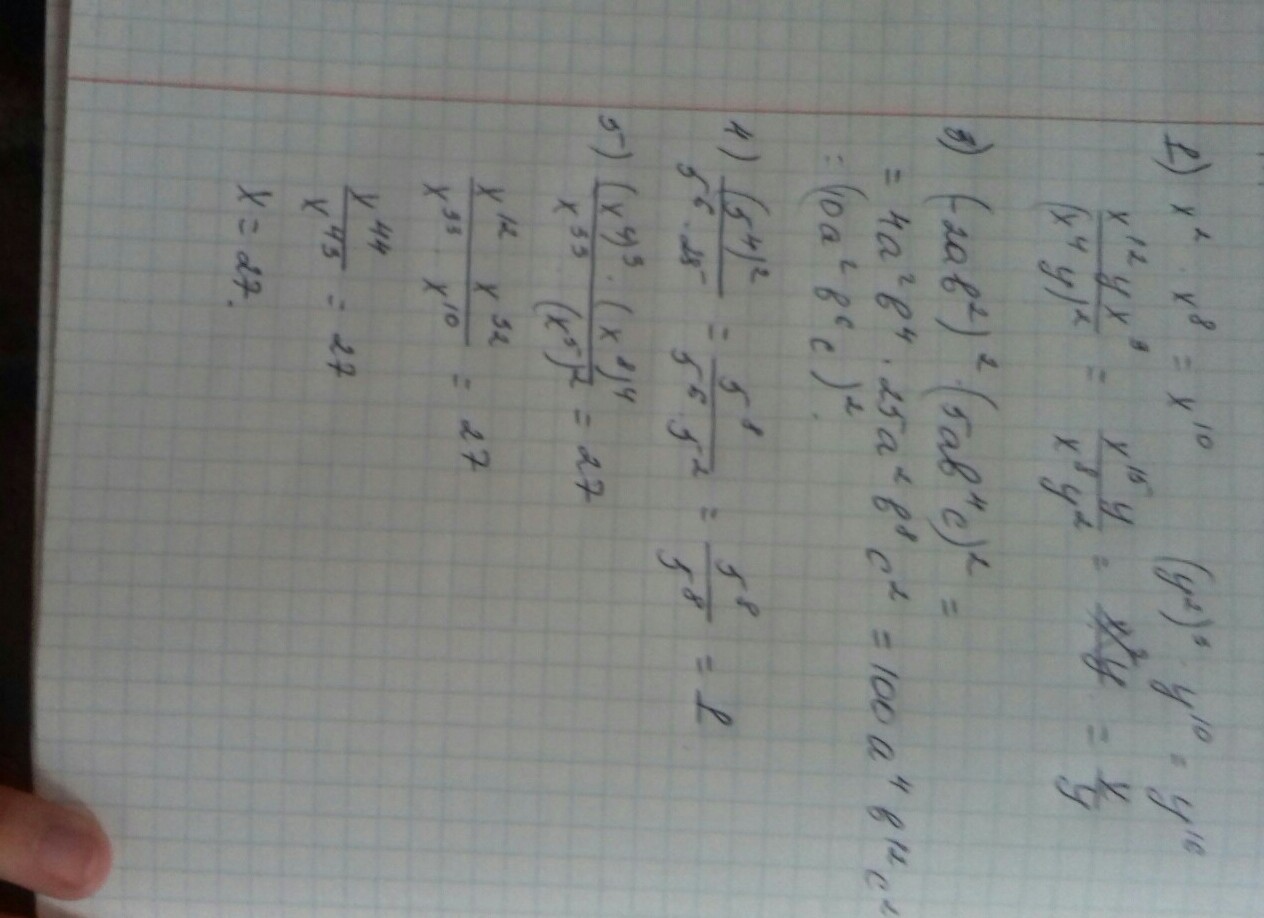 1) x² · x⁸ = x¹⁰ (y²)³ · y¹⁰ = y¹⁶
x¹² y x³ / (x⁴ y)² = x¹⁵ y / x⁸ y² = = x / y
3) (-2ab²)² · (5ab⁴c)² =
= 4a²b⁴ · 25a²b⁸c² = 100a⁴b¹²c²
= (10a²b⁶c)².
4) (5⁴)² / 5⁶ · 25 = 5⁸ / 5⁶ · 5² = 5⁸ / 5⁸ = 1
5) (x⁴)³ · (x⁸)⁴ / x³³ (x⁵)² = 27
x¹² x³² / x³³ · x¹⁰ = 27
x⁴⁴ / x⁴³ = 27
x = 27.